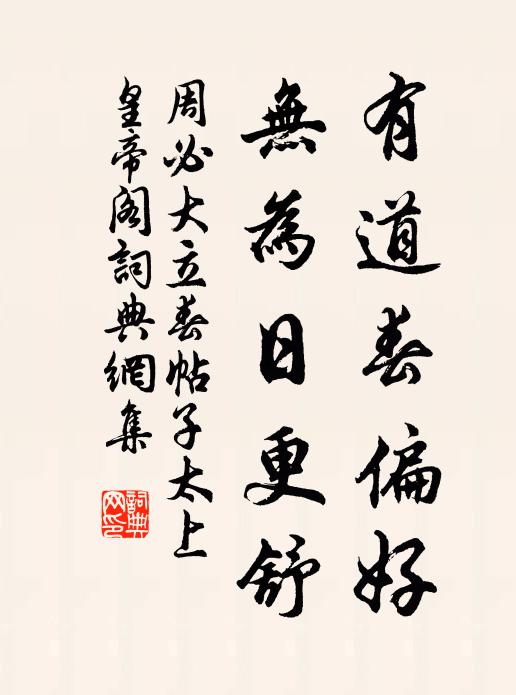 有道春偏好
無為日更舒
周必大立春帖子太上
皇帝阁詞典網集
詞典网印